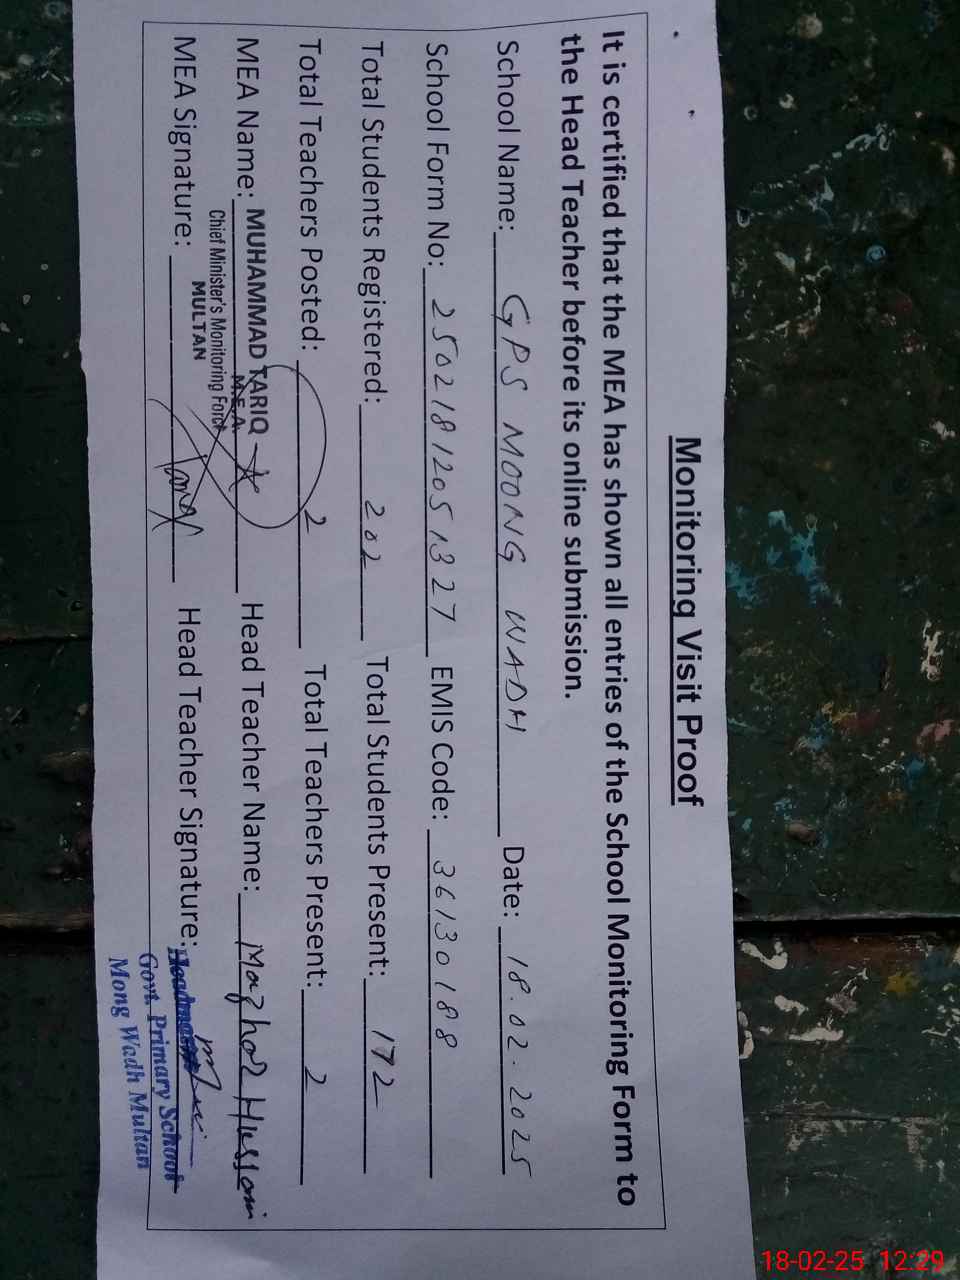 Monitoring Visit Proof
It is certified that the MEA has shown all entries of the School Monitoring Form to
the Head Teacher before its online submission.
School Name: GPS MOONG WADH Date: 18.02.2025
School Form No: 25021812051327 EMIS Code: 36130188
Total Students Registered: 202 Total Students Present: 172
Total Teachers Posted: 2 Total Teachers Present: 2
MEA Name: MUHAMMAD TARIQ Head Teacher Name: Mazhar Hussain
M.E.A.
Chief Minister's Monitoring Force
MULTAN
MEA Signature: Tariq Head Teacher Signature:
Govt. Primary School
Mong Wadh Multan
18-02-25 12:29